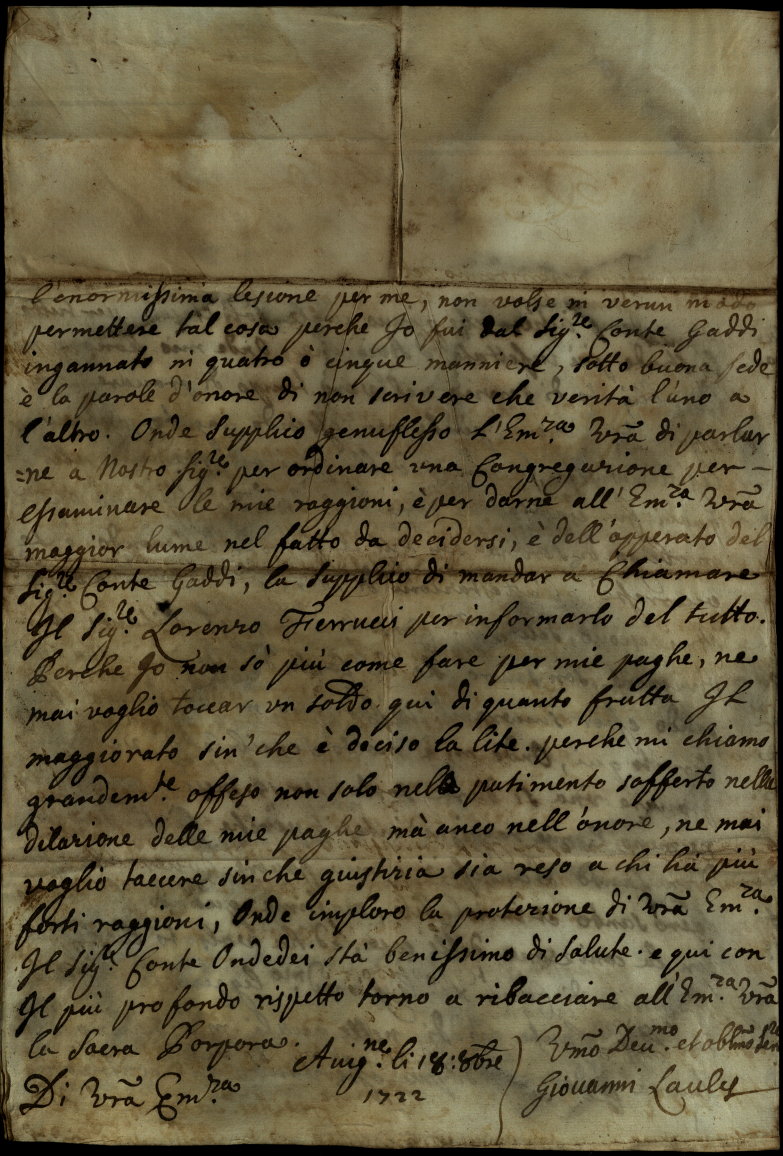 l'enormissima lesione per me, non volse in verun modo
permettere tal cosa perche Jo fui dal Sig.re Conte Gaddi
ingannato in quatro ò cinque manniere, sotto buona fede
è la parole d'onore di non scrivere che verità l'uno a
l'altro. Onde Supplico genuflesso L'Em.za Vrã di parlar
=ne a Nostro Sig.re per ordinare una Congregazione per-
essaminare le mie raggioni, è per darne all' Em.za Vrã
maggior lume nel fatto da decidersi, è dell'opperato del
Sig.re Conte Gaddi, la Supplico di mandar a Chiamare
Il Sig.re Lorenzo Ferrucci per informarlo del tutto.
Perche Jo non sò più come fare per mie paghe, ne
mai voglio toccar un soldo qui di quanto frutta Il
maggiorato sin' che è deciso la lite. perche mi chiamo
grandem.te offeso non solo nell patimento sofferto nella
dilazione delle mie paghe mà anco nell'ònore, ne mai
voglio taccere sin che giustizia sia reso a chi hà più
forti raggioni, Onde imploro la protezione di Vrã Em.za
Il Sig.re Conte Ondedei stà benissimo di Salute. e qui con
Il più profondo rispetto torno a ribacciare all'Em.za Vrã
la Sacra Porpora. Avig.ne li 18: 8bre 1722
Di Vrã Em.za
Vmõ Deu.mo et obblmõ Ser.re
Giovanni Lauly